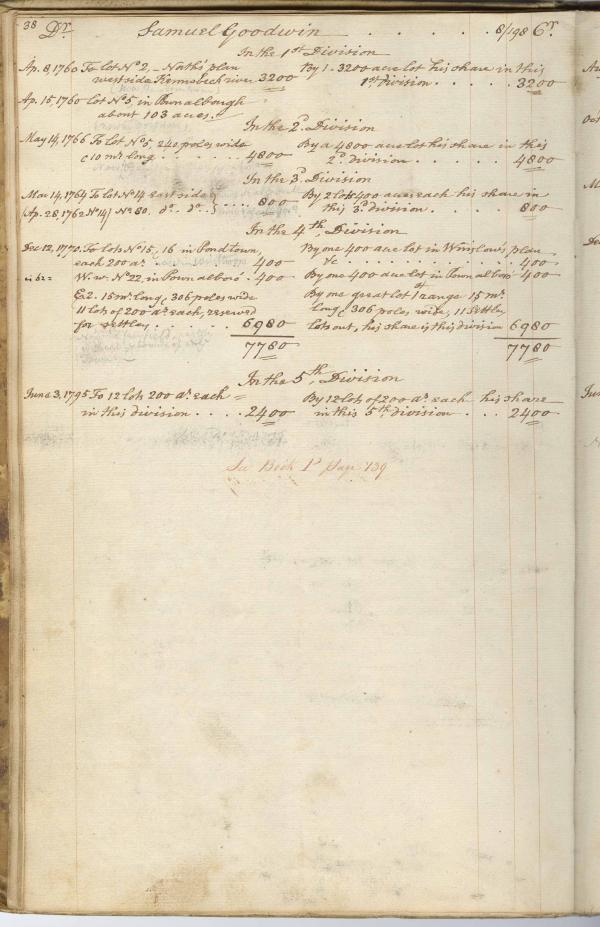 38 Dr. Samuel Goodwin . . . . . . 8/198 Cr.
In the 1st Division
Ap. 8, 1760 To lot No 2, - North's plan
west side Kennebeck river 3200
By 1 - 3200 acre lot his share in this
1st division . . . . . 3200
Ap. 15, 1760 lot No 5 in Pownalbourgh
about 103 acres.
In the 2d. Division
May 14, 1766 To lot No 5, 240 poles wide
10 ms. long . . . . . . . 4800
By a 4800 acre lot his share in this
2d. division . . . . . . 4800
In the 3d. Division
Mar 14, 1764 To lot No 14 east side
Ap. 28, 1762 No 80. do. do. . . . . 800
By 2 lots 400 acres each his share in
this 3d. division . . . . . 800
In the 4th, Division
Dec 12, 1770. To lots No 15, 16 in Pondtown,
each 200 as. . . . . . 400
W. w. No 22, in Pownalboro . 400
E. 2. 15 ms. long, 306 poles wide
11 lots of 200 as. each, reserved
for settlers . . . . . . 6980
7780
By one 400 acre lot in Winslow's plan
&c . . . . . . . . . . . 400
By one 400 acre lot in Pownalboro 400
By one great lot 1st range 15 ms.
long, 306 poles wide, 11 settlers
lots out, his share is this division 6980
7780
In the 5th, Division
June 3, 1795 To 12 lots 200 as. each
in this division . . . . 2400
By 12 lots of 200 as. each his share
in this 5th, division . . . 2400
See Book 1st page 139